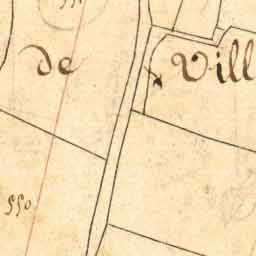 de Vill
550